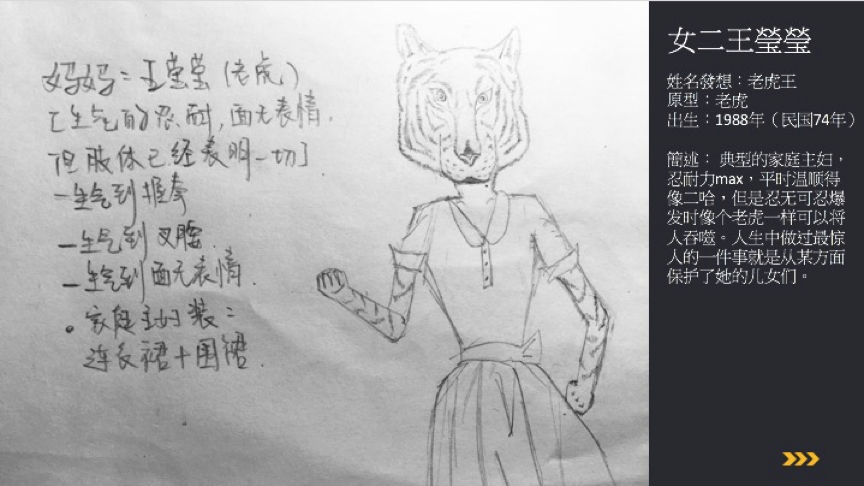 妈妈=王莹莹(老虎)
[生气的忍耐,面无表情.
但肢体已经表明一切]
一生气到握拳
一生气到叉腰.
一生气到面无表情.
。家庭主妇装:
连衣裙+围裙.
女二王瑩瑩
姓名發想:老虎王
原型:老虎
出生:1988年(民国74年)
簡述: 典型的家庭主妇,
忍耐力max,平时温顺得
像二哈,但是忍无可忍爆
发时像个老虎一样可以将
人吞噬。人生中做过最惊
人的一件事就是从某方面
保护了她的儿女们。